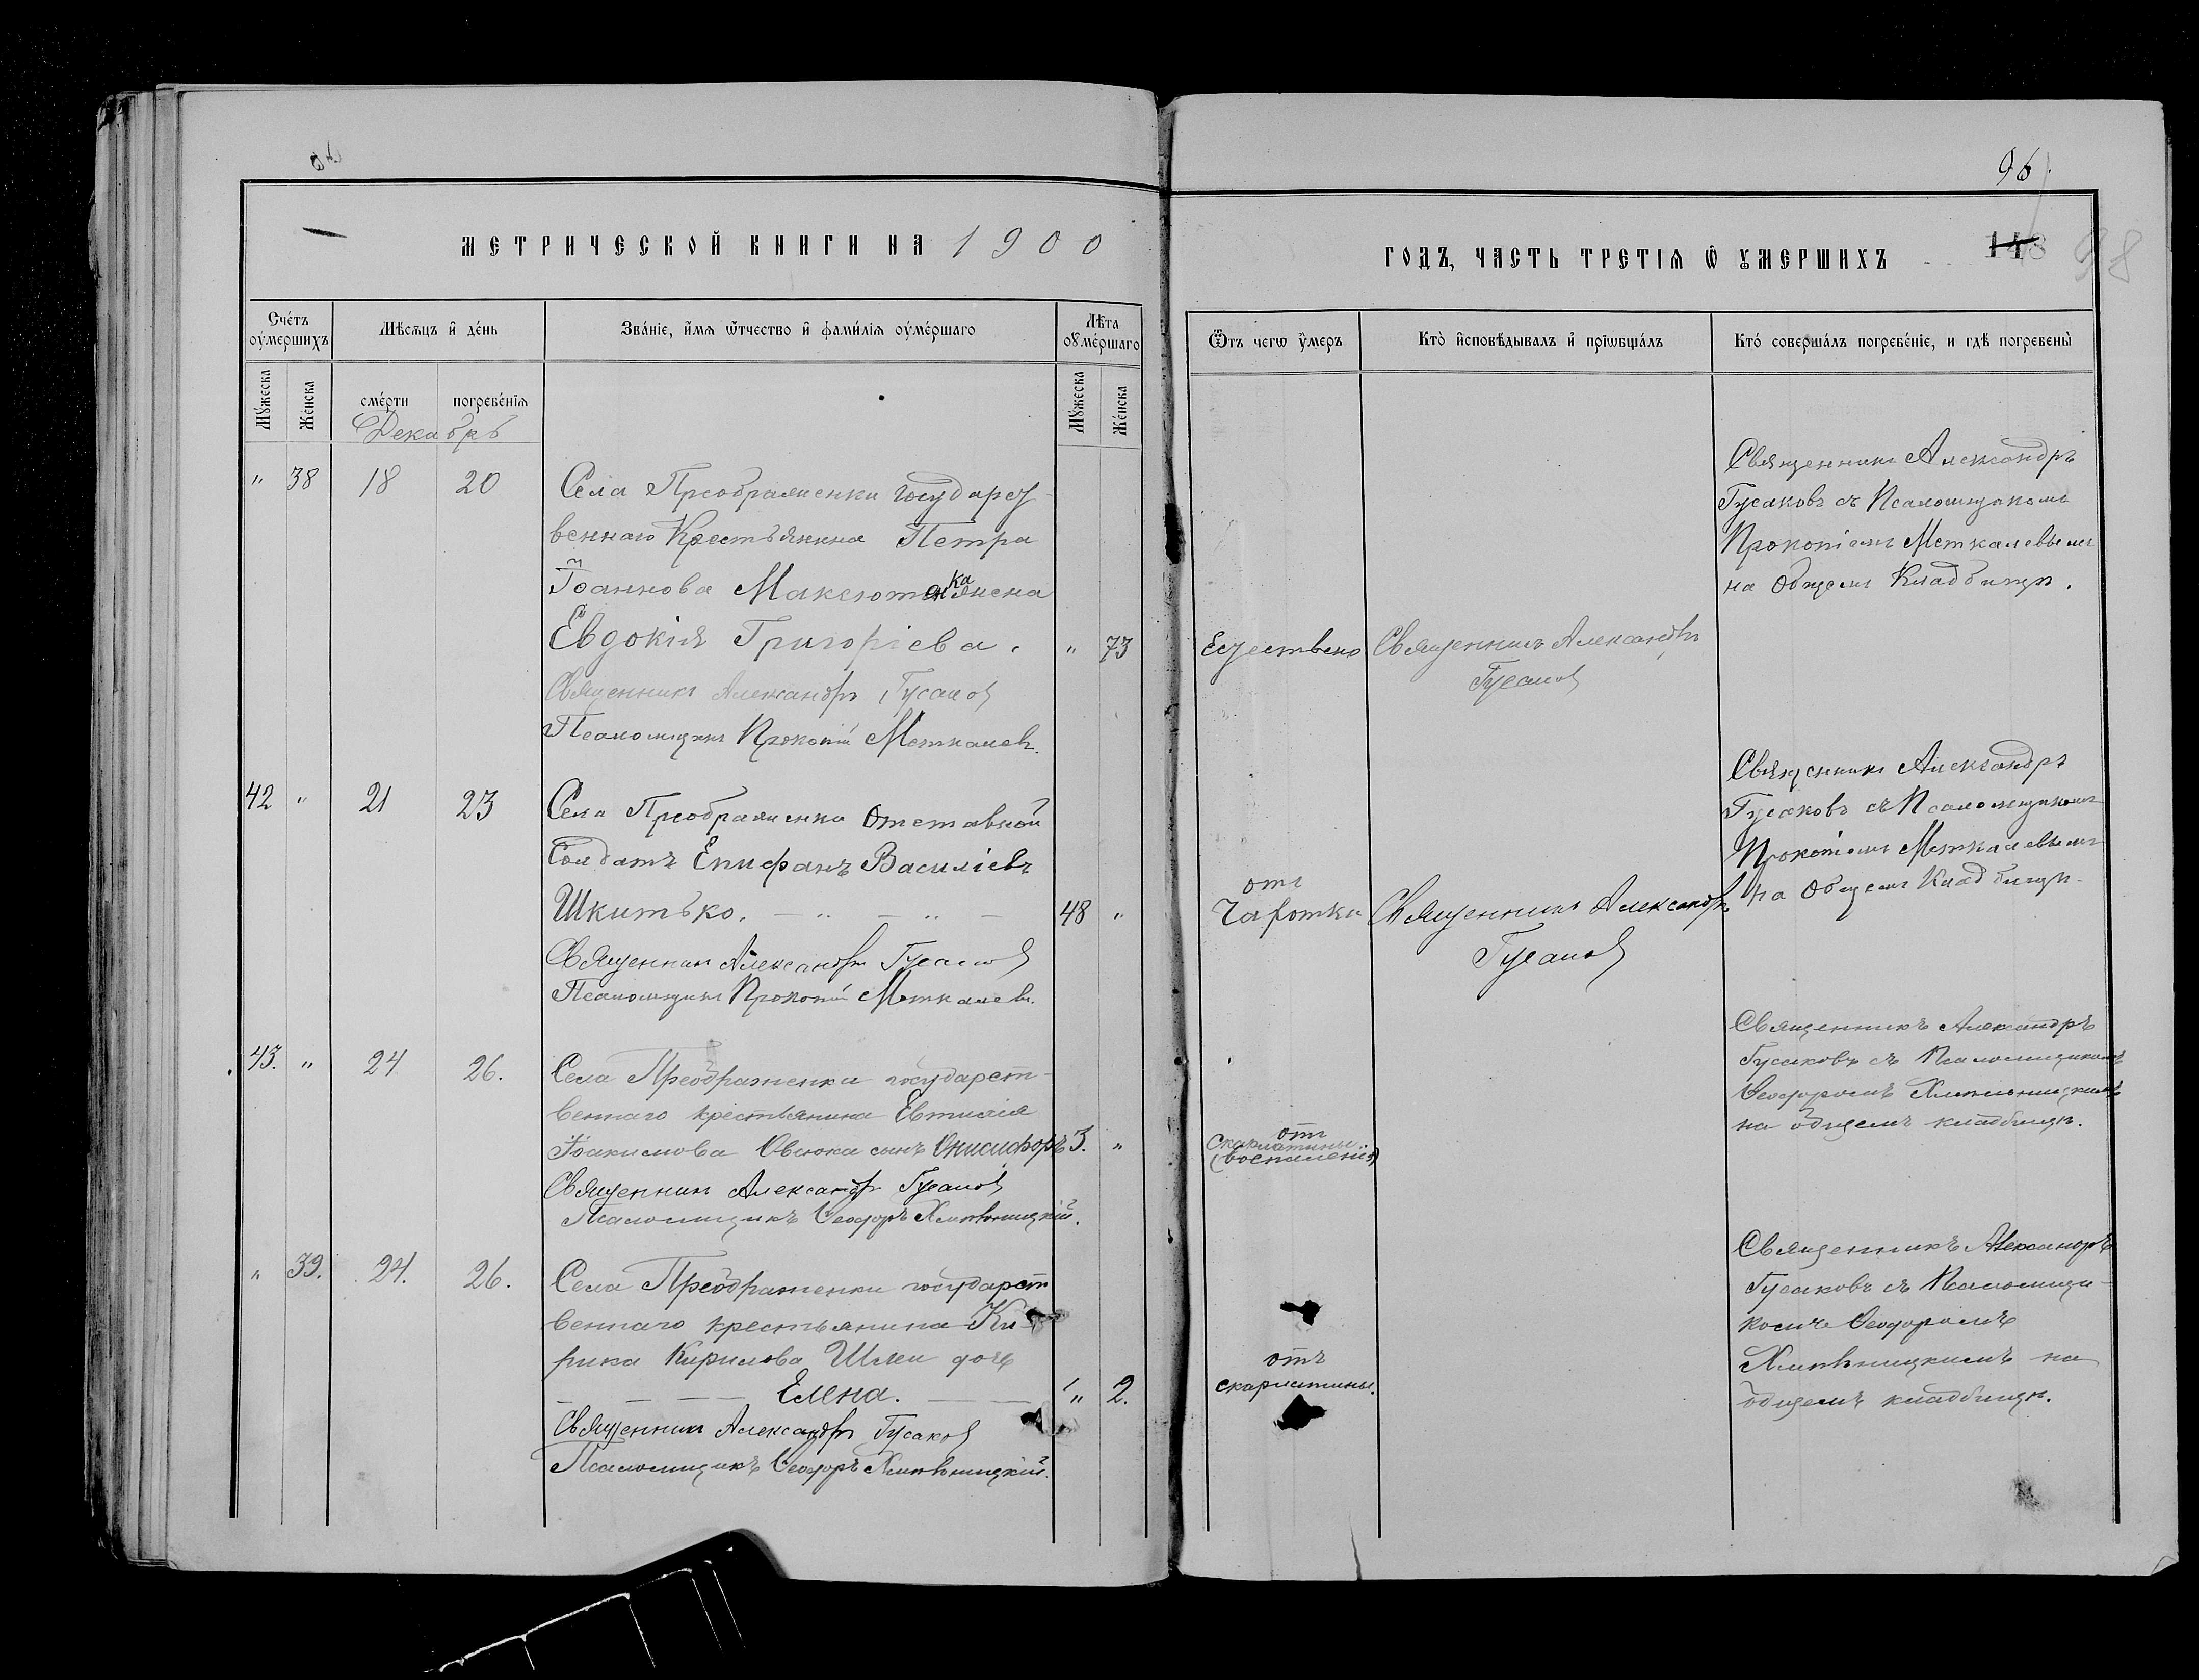 96
МЕТРИЧЕСКОЙ КНИГИ НА 1900
ГОДЪ, ЧАСТЬ ТРЕТІЯ Ѿ УМЕРШИХЪ
98
Счетъ умершихъ
Мѣсяцъ и день
Званіе, имя ѿтчество и фамилія умершаго
Лѣта умершаго
Ѿтъ чегѡ умеръ
Кто исповѣдывалъ и пріѡбщалъ
Кто совершалъ погребеніе, и гдѣ погребены
Мужеска
Женска
смерти
погребенія
Мужеска
Женска
Декабрь
" 38 18 20
Села Преображенки государст
веннаго Крестьянина Петра
Іоаннова Максютенка жена
Евдокія Григоріева.
" 73
Священникъ Александръ Гусаковъ
Псаломщикъ Прокопій Меткалевъ.
Естествено
Священникъ Александръ
Гусаковъ
Священникъ Александръ
Гусаковъ съ Псаломщикомъ
Прокопіемъ Меткалевымъ
на общемъ Кладбищѣ.
42 " 21 23
Села Преображенки Отставной
Солдатъ Епифанъ Василіевъ
Шкитько.
48 "
Священникъ Александръ Гусаковъ
Псаломщикъ Прокопій Меткалевъ.
отъ
Чахотки
Священникъ Александръ
Гусаковъ
Священникъ Александръ
Гусаковъ съ Псаломщикомъ
Прокопіемъ Меткалевымъ
на Общемъ Кладбищѣ.
43. " 24 26.
Села Преображенки государст-
веннаго крестьянина Евтихія
Іоакимова Овсюка сынъ Онисифоръ
3. "
Священникъ Александръ Гусаковъ
Псаломщикъ Ѳеодоръ Хмѣльницкій.
отъ
Скарлатины
(воспаленія)
Священникъ Александръ
Гусаковъ съ Псаломщикомъ
Ѳеодоромъ Хмѣльницкимъ
на общемъ кладбищѣ.
" 39. 24. 26.
Села Преображенки государст
веннаго крестьянина Ки-
рика Кирилова Шляи дочь
Елена.
" 2.
Священникъ Александръ Гусаковъ
Псаломщикъ Ѳеодоръ Хмѣльницкій.
отъ
скарлатины.
Священникъ Александръ
Гусаковъ съ Псаломщи-
комъ Ѳеодоромъ
Хмѣльницкимъ на
общемъ кладбищѣ.